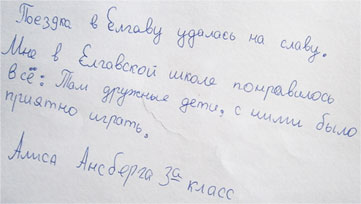 Поездка в Елгаву удалась на славу.
Мне в Елгавской школе понравилось
всё: Там дружные дети, с ними было
приятно играть.
Алиса Ансберга 3а класс